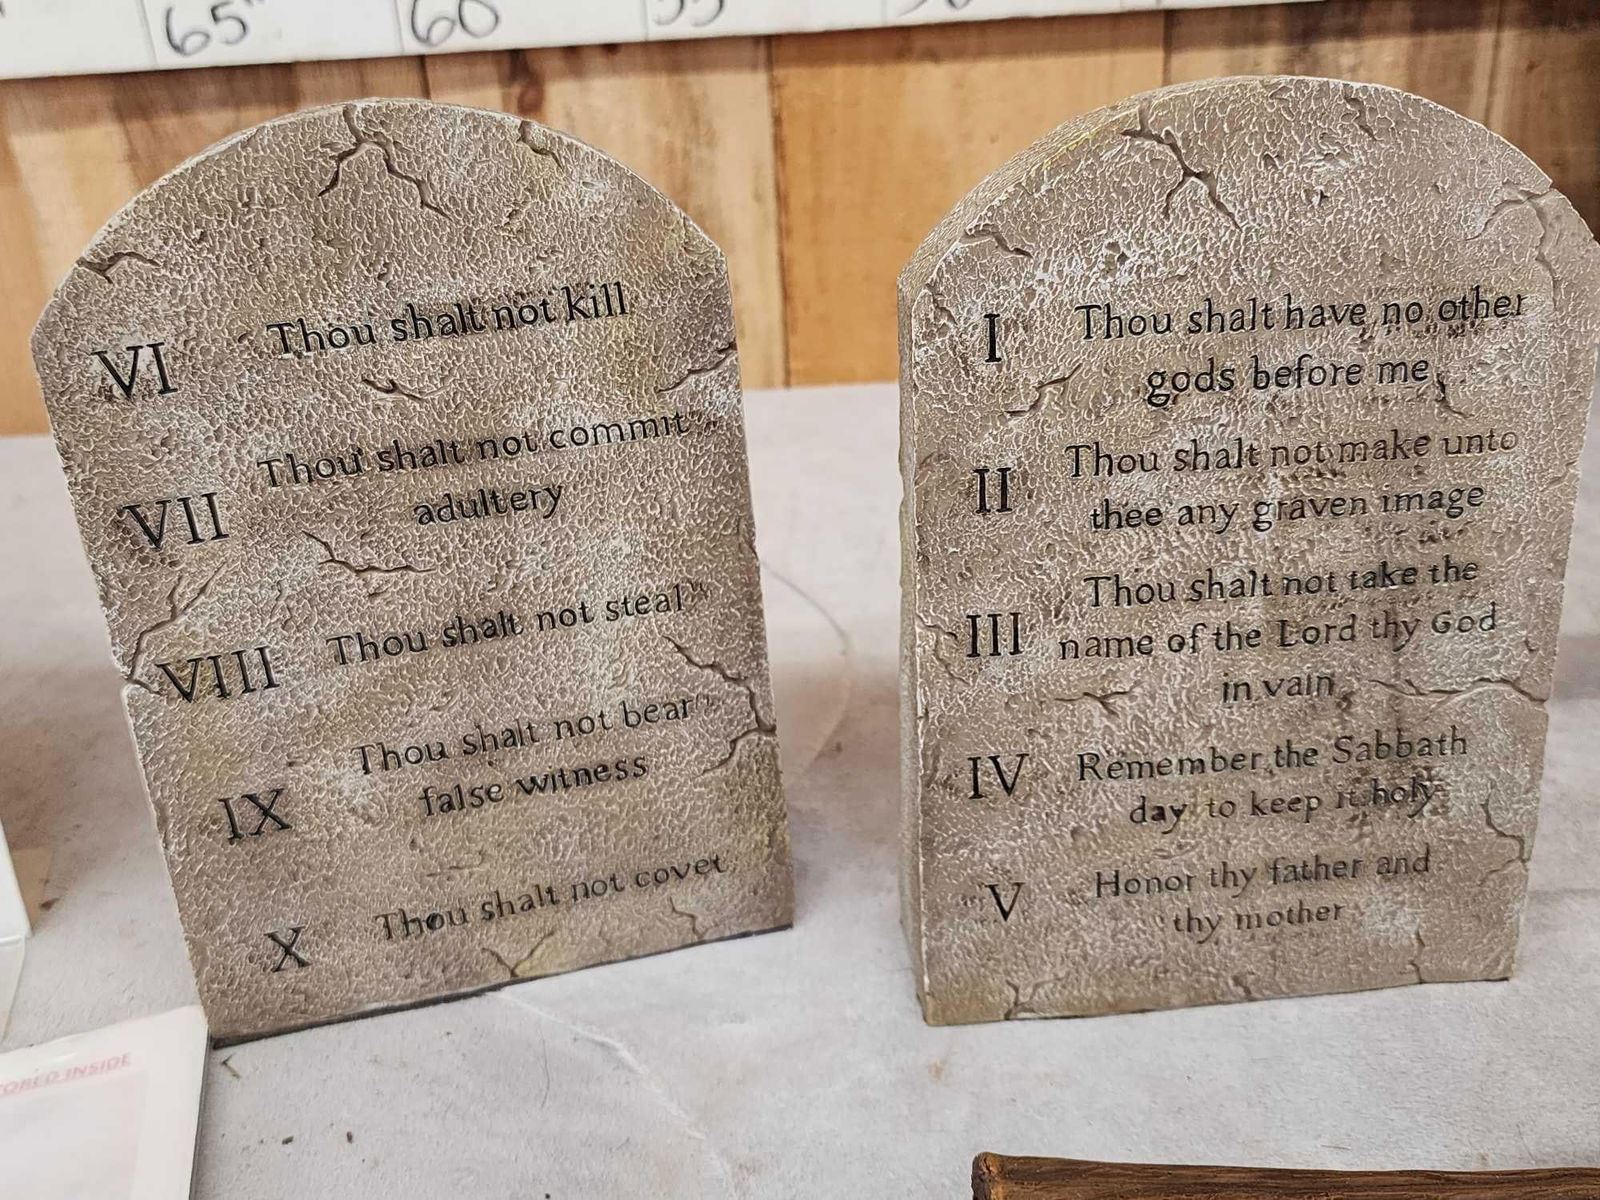 65"
60
VI Thou shalt not kill
VII Thou shalt not commit
adultery
VIII Thou shalt not steal
IX Thou shalt not bear
false witness
X Thou shalt not covet
I Thou shalt have no other
gods before me
II Thou shalt not make unto
thee any graven image
III Thou shalt not take the
name of the Lord thy God
in vain
IV Remember the Sabbath
day to keep it holy
V Honor thy father and
thy mother
INSIDE